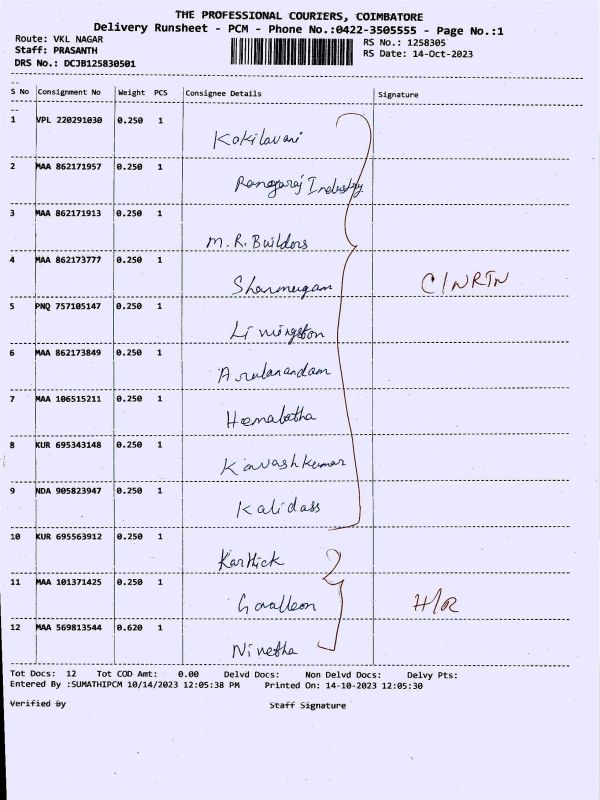 THE PROFESSIONAL COURIERS, COIMBATORE
Delivery Runsheet - PCM - Phone No.:0422-3505555 - Page No.:1
Route: VKL NAGAR RS No.: 1258305
Staff: PRASANTH RS Date: 14-Oct-2023
DRS No.: DCJB125830501
S No Consignment No Weight PCS Consignee Details Signature
1 VPL 220291030 0.250 1
Kokilavani
2 MAA 862171957 0.250 1
Rangaraj Industry
3 MAA 862171913 0.250 1
M.R. Builders
4 MAA 862173777 0.250 1
Shanmugam C/NRTN
5 PNQ 757105147 0.250 1
Livingston
6 MAA 862173849 0.250 1
Arulanandam
7 MAA 106515211 0.250 1
Hemalatha
8 KUR 695343148 0.250 1
Kavashkumar
9 NDA 905823947 0.250 1
Kalidass
10 KUR 695563912 0.250 1
Karthick
11 MAA 101371425 0.250 1
H/R
12 MAA 569813544 0.620 1
Nivetha
Tot Docs: 12 Tot COD Amt: 0.00 Delvd Docs: Non Delvd Docs: Delvy Pts:
Entered By :SUMATHIPCM 10/14/2023 12:05:38 PM Printed On: 14-10-2023 12:05:30
Verified By Staff Signature